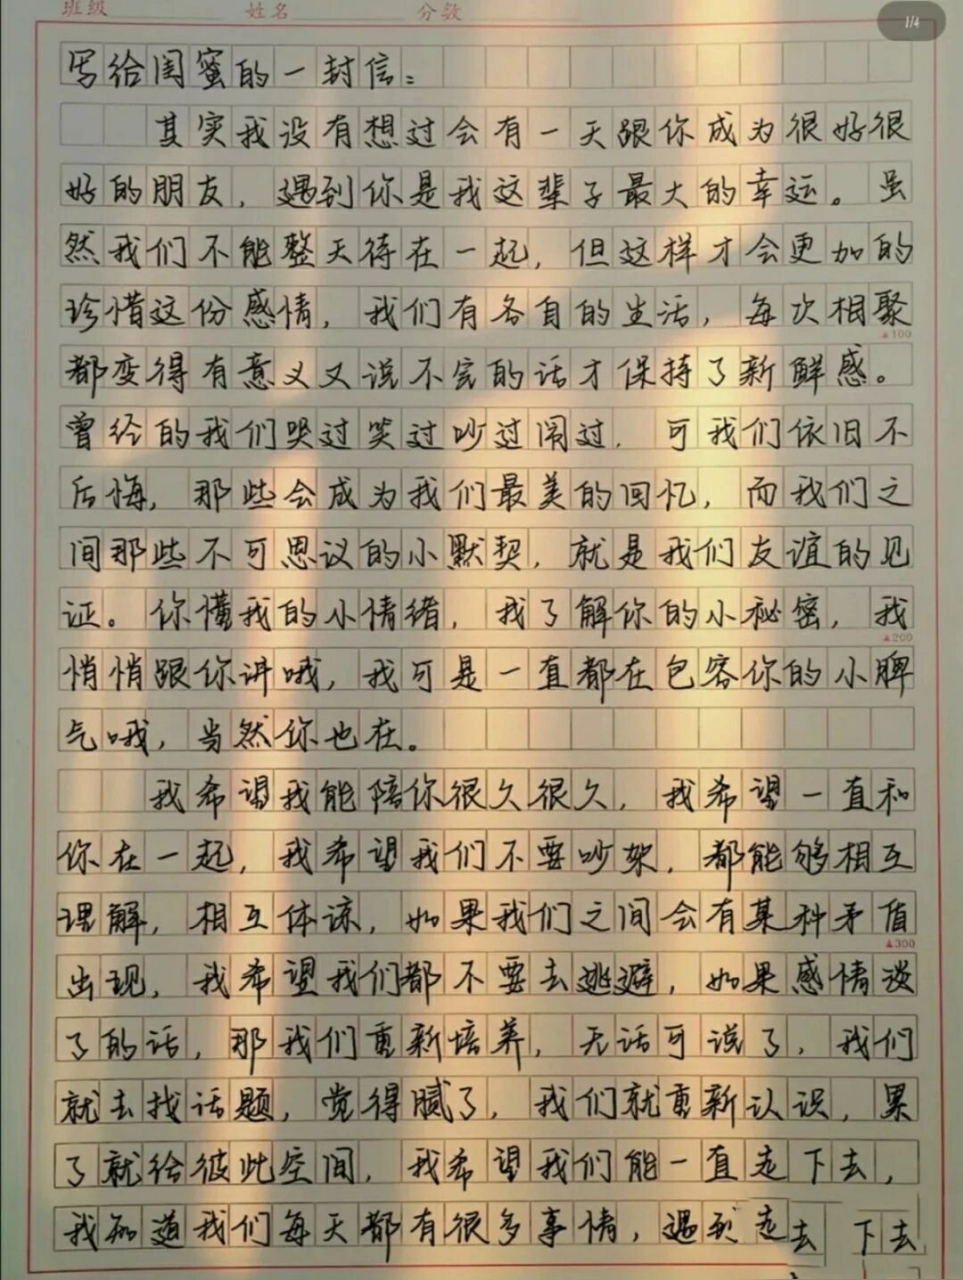 班级 姓名 分数
1/4
写给闺蜜的一封信：
其实我没有想过会有一天跟你成为很好很
好的朋友，遇到你是我这辈子最大的幸运。虽
然我们不能整天待在一起，但这样才会更加的
珍惜这份感情，我们有各自的生活，每次相聚
▲100
都变得有意义又说不完的话才保持了新鲜感。
曾经的我们哭过笑过吵过闹过．可我们依旧不
后悔，那些会成为我们最美的回忆，而我们之
间那些不可思议的小默契，就是我们友谊的见
证。你懂我的小情绪，我了解你的小秘密，我
▲200
悄悄跟你讲哦，我可是一直都在包容你的小脾
气哦，当然你也在。
我希望我能陪你很久很久，我希望一直和
你在一起，我希望我们不要吵架，都能够相互
理解，相互体谅，如果我们之间会有某种矛盾
▲300
出现，我希望我们都不要去逃避，如果感情淡
了的话，那我们重新培养，无话可说了，我们
就去找话题，觉得腻了，我们就重新认识，累
了就给彼此空间，我希望我们能一直走下去，
我知道我们每天都有很多事情，遇到走去 下去